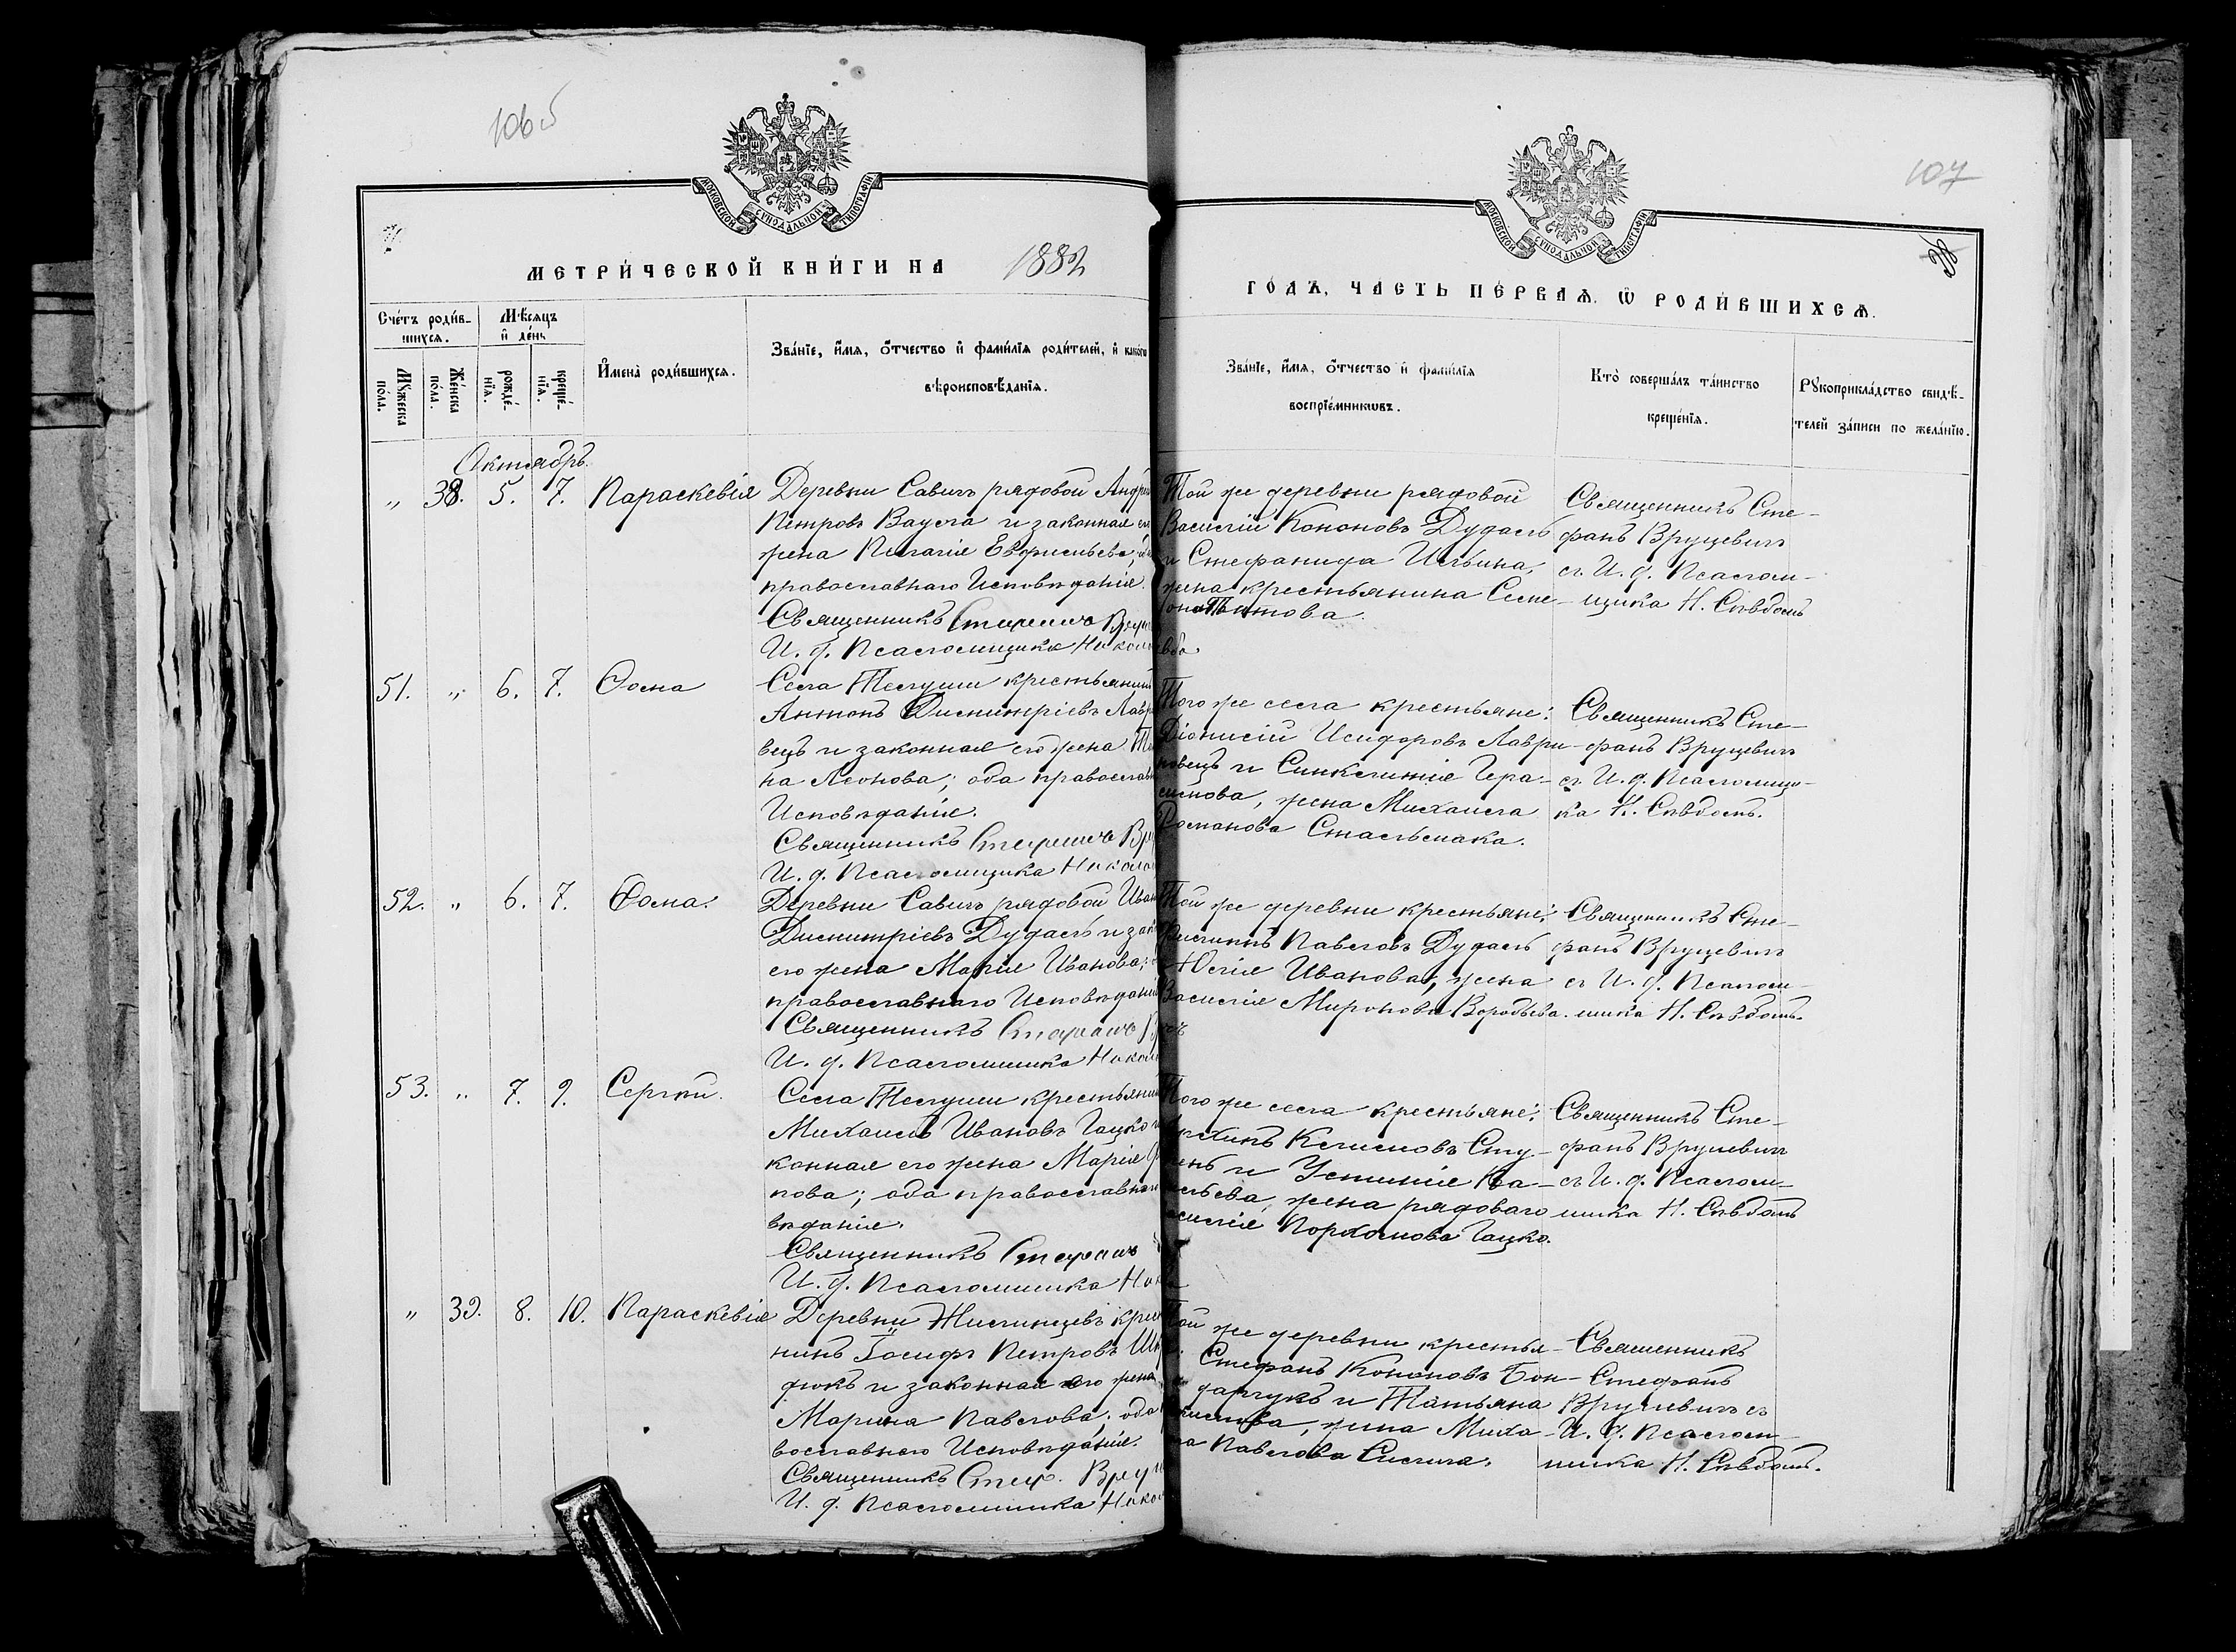 106 б
107
МОСКОВСКОЙ СѴНОДАЛЬНОЙ ТИПОГРАФІИ
МОСКОВСКОЙ СѴНОДАЛЬНОЙ ТИПОГРАФІИ
МЕТРИ́ЧЕСКОЙ КНИ́ГИ НА 1882
ГО́ДЪ, ЧАСТЬ ПЕ́РВАѦ, Ѿ РОДИ́ВШИХСѦ.
Сче́тъ роди́в-
шихсѧ.
Мꙋ́жеска по́ла.
Же́нска по́ла.
Мѣ́сѧцъ
и҆ де́нь
рожде́-
нїѧ.
креще́-
нїѧ.
И҆мена̀ роди́вшихсѧ.
Зва́нїе, и҆́мѧ, ѻ҆́тчество и҆ фами́лїѧ роди́телей, и҆ како́гѡ
вѣроисповѣ́данїѧ.
Зва́нїе, и҆́мѧ, ѻ҆́тчество и҆ фами́лїѧ
воспрїе́мникѡвъ.
Кто̀ соверша́лъ та́инство
креще́нїѧ.
Рꙋкоприкла́дство свидѣ́-
телей за́писи по жела́нїю.
Октябрь.
„ 38. 5. 7. Параскевія
Деревни Савичъ рядовой Андрей
Петровъ Ваула и законная его
жена Пелагія Евфимьева;
православнаго Исповѣданія.
Священникъ Стефанъ
И. д. Псаломщика
Той же деревни рядовой
Василій Кононовъ Дудаль
и Стефанида Ильина,
жена крестьянина Семе-
она Титова.
Священникъ Сте-
фанъ Вруцевичъ
съ И. д. Псалом-
щика Н.
51. „ 6. 7. Ѳома
Села Телуши крестьянинъ
Антонъ Димитріевъ
вецъ и законная его жена
на Леонова; оба православн
Исповѣданія.
Священникъ Стефанъ
И. д. Псаломщика
Того же села крестьяне:
Діонисій Исидоровъ Лаври-
новецъ и Синклитія Гера-
симова, жена Михаила
Романова Стальмака.
Священникъ Сте-
фанъ Вруцевичъ
съ И. д. Псаломщи-
ка Н.
52. „ 6. 7. Ѳома.
Деревни Савичъ рядовой Иванъ
Димитріевъ Дудаль и зак
его жена Марія Иванова;
православнаго Исповѣданія
Священникъ Стефанъ
И. д. Псаломщика
Той же деревни крестьяне:
Филиппъ Павловъ Дудаль
Юлія Иванова, жена
Василія Миронова Воробьева.
Священникъ Сте-
фанъ Вруцевичъ
съ И. д. Псалом-
щика Н.
53. „ 7. 9. Сергѣй.
Села Телуши крестьянинъ
Михаилъ Ивановъ Гацко
конная его жена Марія
пова; оба православнаго
вѣданія.
Священникъ Стефанъ
И. д. Псаломщика
Того же села крестьяне:
Климовъ Сту-
и Устинія Ва-
сильева, жена рядоваго
Василія Порхомова Гацко.
Священникъ Сте-
фанъ Вруцевичъ
съ И. д. Псалом-
щика Н.
„ 39. 8. 10. Параскевія
Деревни Жилинцевъ крестья
нинъ Іосифъ Петровъ
дюкъ и законная его жена
Марина Павлова; оба
вославнаго Исповѣданія.
Священникъ Стеф.
И. д. Псаломщика
Той же деревни крестья-
Стефанъ Кононовъ Бон-
дарчукъ и Татьяна
жена Миха-
Павлова
Священникъ
Стефанъ
Вруцевичъ съ
И. д. Псалом-
щика Н.